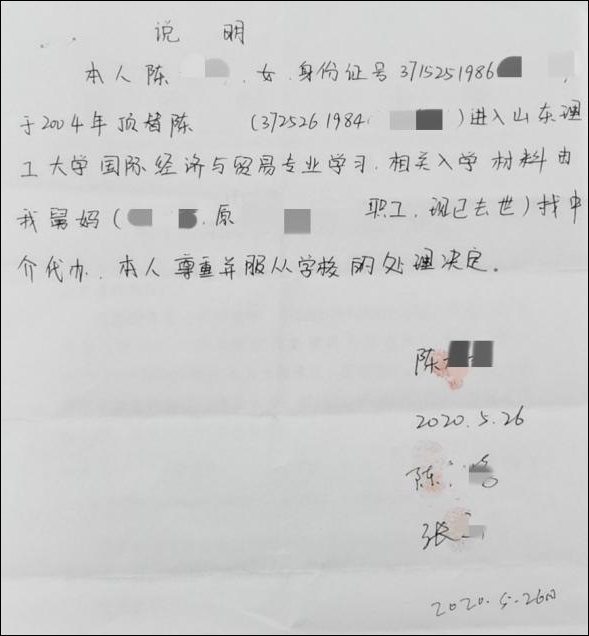 说 明
本人陈 ,女,身份证号3715251986 ,
于2004年顶替陈 (3725261984 )进入山东理
工大学国际经济与贸易专业学习,相关入学材料由
我舅妈( ,原 职工,现已去世)找中
介代办,本人尊重并服从学校的处理决定。
陈
2020.5.26
陈
张
2020.5.26日